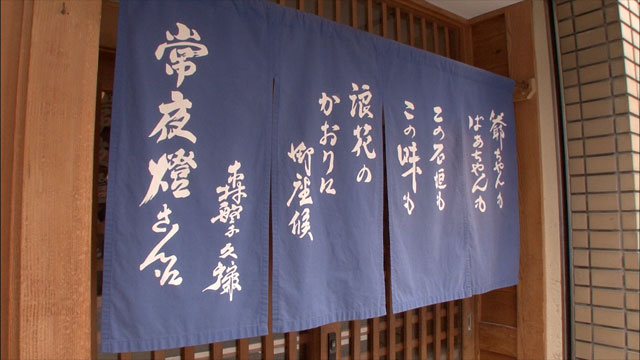 爺ちゃんも
ばあちゃんも
この石垣も
この味も
浪花の
かおりに
御座候
常夜燈さん
森繁久彌